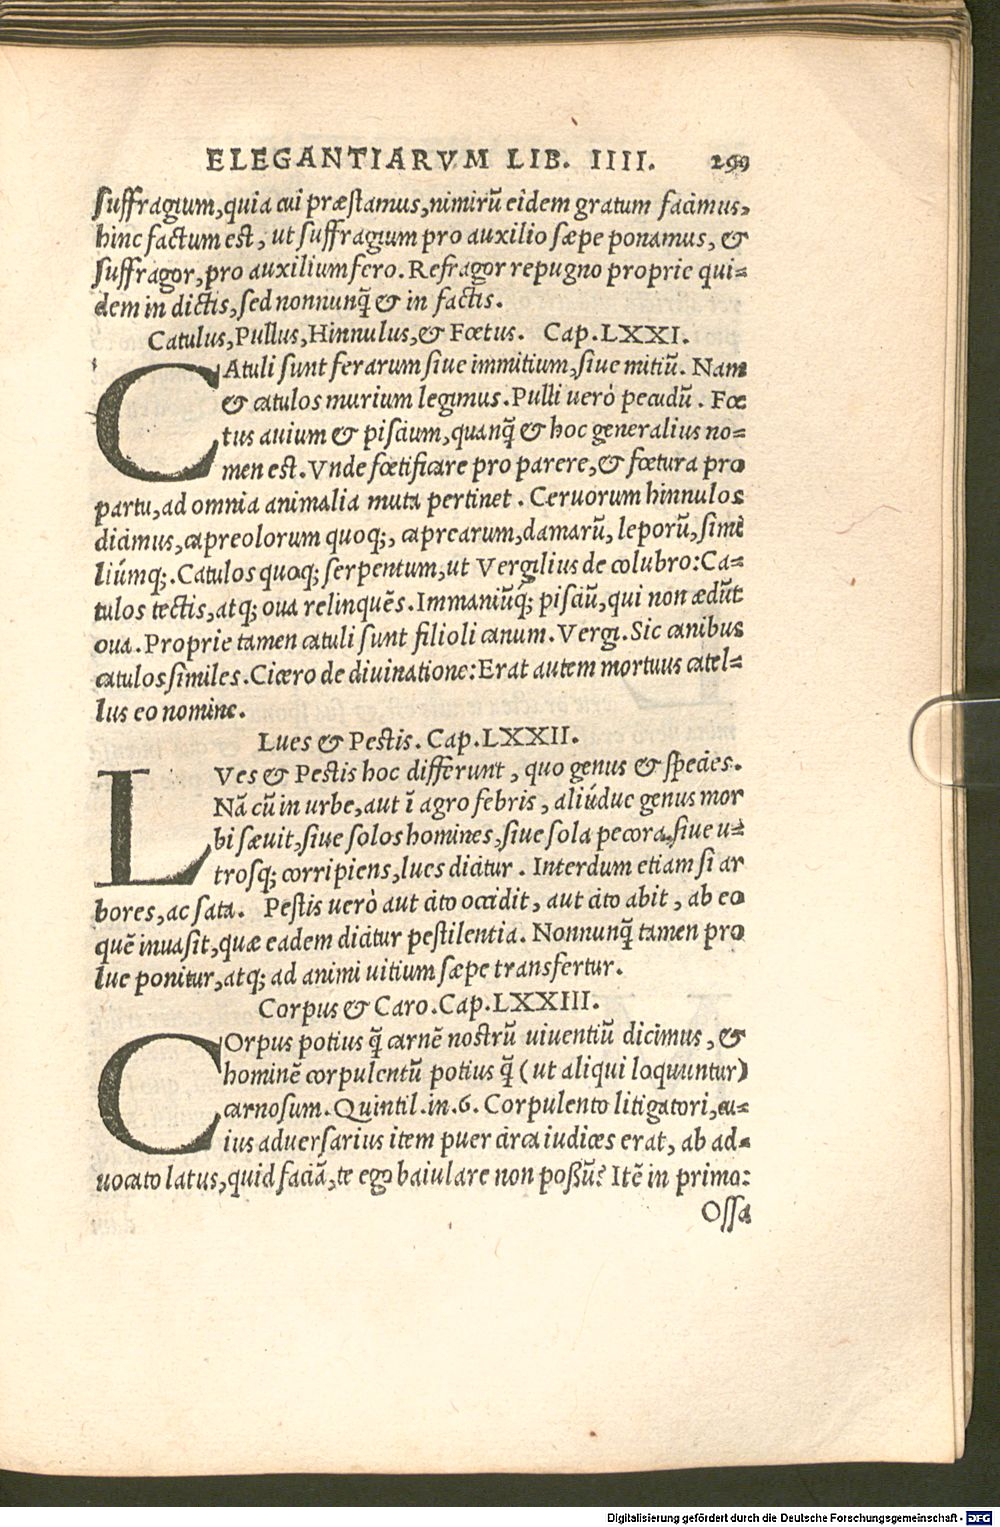 ELEGANTIARVM LIB. IIII. 299
suffragium, quia cui præstamus, nimirũ eidem gratum facimus,
hinc factum est, ut suffragium pro auxilio sæpe ponamus, &
suffragor, pro auxilium fero. Refragor repugno proprie qui=
dem in dictis, sed nonnunq̃ & in factis.
Catulus, Pullus, Hinnulus, & Fœtus. Cap. LXXI.
CAtuli sunt ferarum siue immitium, siue mitiũ. Nam
& catulos murium legimus. Pulli uerò pecudũ. Fœ
tus auium & piscium, quanq̃ & hoc generalius no=
men est. Vnde fœtificare pro parere, & fœtura pro
partu, ad omnia animalia muta pertinet. Ceruorum hinnulos
dicimus, capreolorum quoq;, caprearum, damarũ, leporũ, simi
liúmq;. Catulos quoq; serpentum, ut Vergilius de colubro: Ca=
tulos tectis, atq; oua relinquẽs. Immaniũq́; pisciũ, qui non ædũt
oua. Proprie tamen catuli sunt filioli canum. Vergi. Sic canibus
catulos similes. Cicero de diuinatione: Erat autem mortuus catel=
lus eo nomine.
Lues & Pestis. Cap. LXXII.
LVes & Pestis hoc differunt, quo genus & species.
Nã cũ in urbe, aut ĩ agro febris, aliúdue genus mor
bi sæuit, siue solos homines, siue sola pecora, siue u=
trosq; corripiens, lues dicitur. Interdum etiam si ar
bores, ac sata. Pestis uerò aut cito occidit, aut cito abit, ab eo
quẽ inuasit, quæ eadem dicitur pestilentia. Nonnunq̃ tamen pro
lue ponitur, atq; ad animi uitium sæpe transfertur.
Corpus & Caro. Cap. LXXIII.
COrpus potius q̃ carnẽ nostrũ uiuentiũ dicimus, &
hominẽ corpulentũ potius q̃ (ut aliqui loquuntur)
carnosum. Quintil. in. 6. Corpulento litigatori, cu=
ius aduersarius item puer circa iudices erat, ab ad=
uocato latus, quid faciã, te ego baiulare non possũ? Itẽ in primo:
Ossa
Digitalisierung gefördert durch die Deutsche Forschungsgemeinschaft - DFG